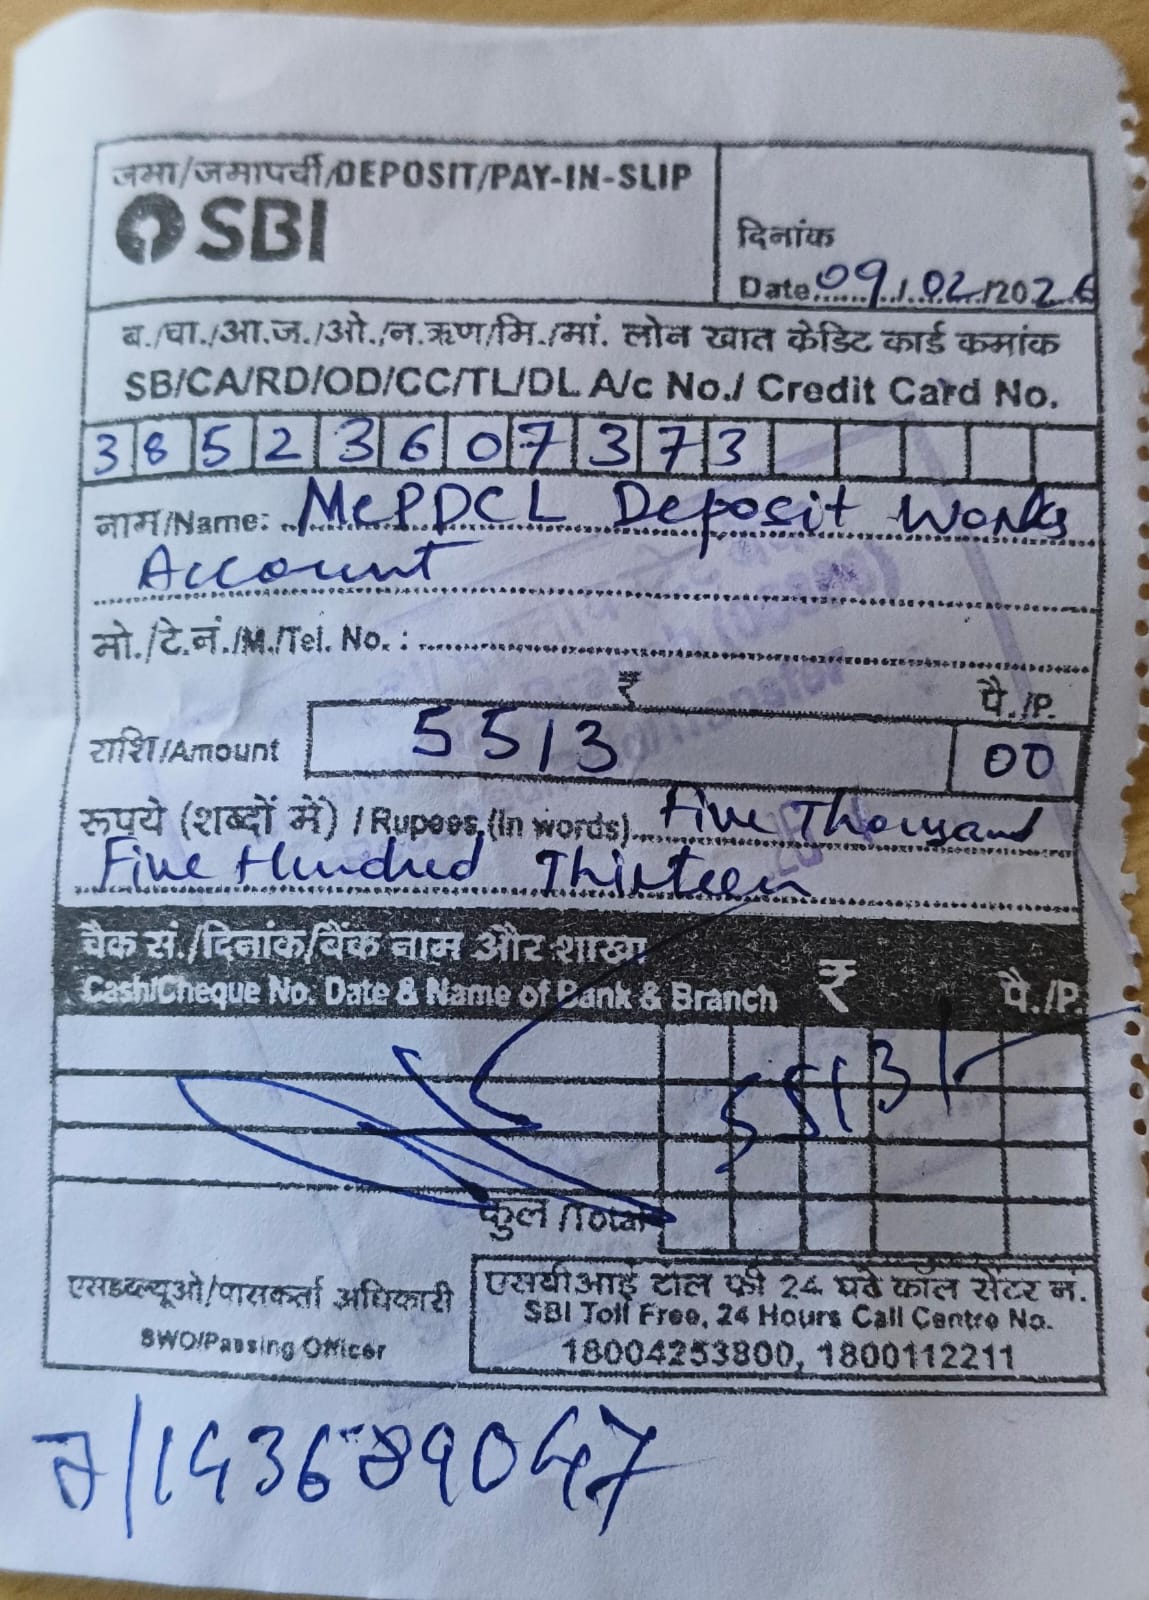 जमा/जमापर्ची/DEPOSIT/PAY-IN-SLIP
SBI
दिनांक
Date 09/02/2026
ब./घा./आ.ज./ओ./न.ऋण/मि./मां. लोन खात केडिट कार्ड कमांक
SB/CA/RD/OD/CC/TL/DL A/c No./ Credit Card No.
38523607373
नाम/Name: MePDCL Deposit Works
Account
मो./टे.नं./M./Tel. No. :
₹ पै./P.
राशि/Amount 5513 00
रूपये (शब्दों में) / Rupees (In words) Five Thousand
Five Hundred Thirteen
चैक सं./दिनांक/बैंक नाम और शाखा
Cash/Cheque No. Date & Name of Bank & Branch ₹ पै./P.
5513/-
कुल /Total
एसडब्ल्यूओ/पासकर्ता अधिकारी
SWO/Passing Officer
एसबीआई टोल फ्री 24 घंटे कॉल सेंटर नं.
SBI Toll Free, 24 Hours Call Centre No.
18004253800, 1800112211